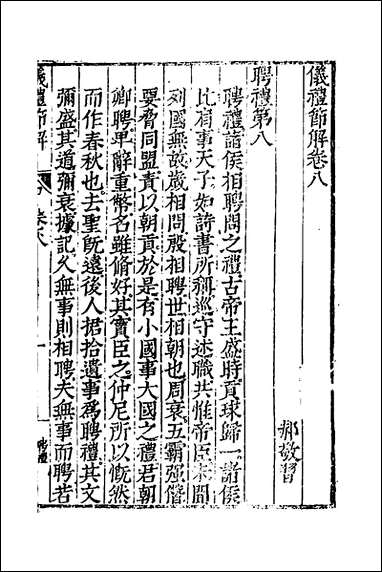 儀禮節解卷八
郝敬習
聘禮第八
聘禮諸侯相聘問之禮古帝王盛時貢球歸一諸侯
比有事天子如詩書所稱巡守述職共惟帝臣未聞
列國無故歲相問殷相聘世相朝也周衰五霸强僭
要脅同盟責以朝貢於是有小國事大國之禮君朝
卿聘卑辭重幣名雖脩好其實臣之仲尼所以慨然
而作春秋也去聖旣遠後人捃拾遺事爲聘禮其文
彌盛其道彌衰據記久無事則相聘夫無事而聘若
儀禮節解
卷八
聘禮